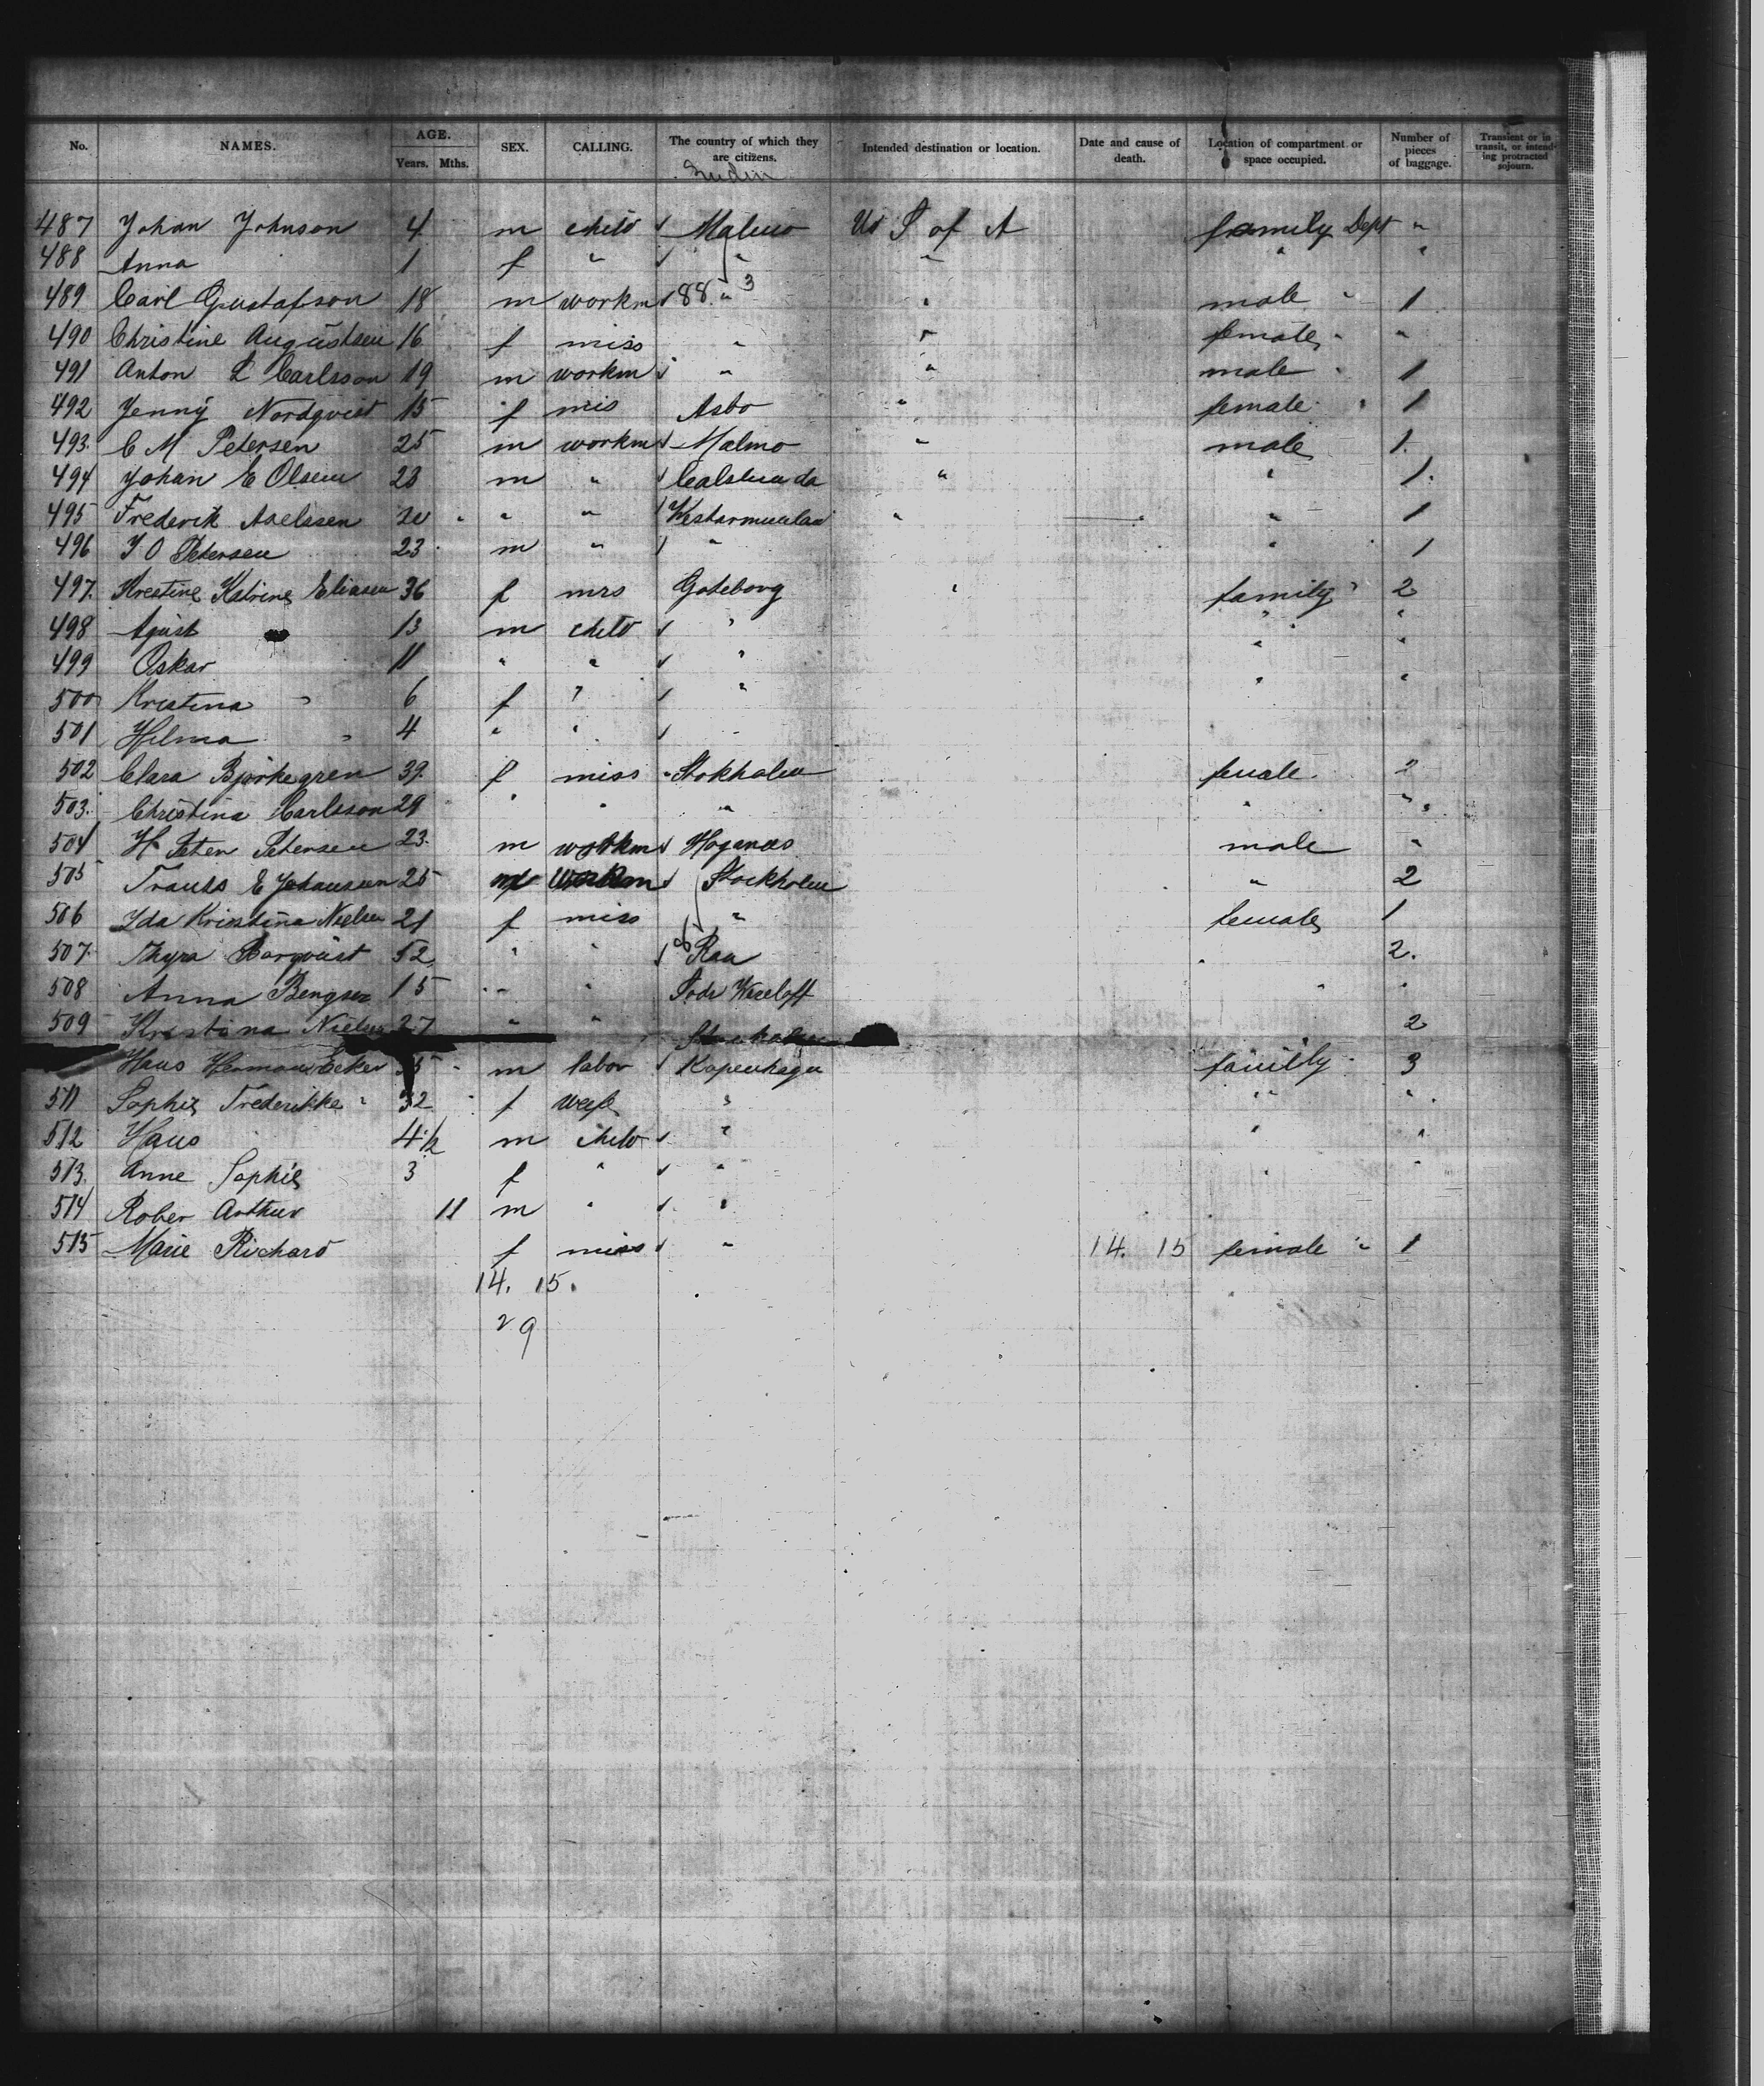 No. NAMES. AGE. Years. Mths. SEX. CALLING. The country of which they are citizens. Intended destination or location. Date and cause of death. Location of compartment or space occupied. Number of pieces of baggage. Transient or in transit, or intending protracted sojourn.
487 Johan Johnson 4 m child Malmo US of A family Dept "
488 Anna 1 f " " " " "
489 Carl Gustafson 18 m workm 88. " 3 " male " 1
490 Christine Augustsen 16 f miss " " female " "
491 Anton L Carlsson 19 m workm " " male " 1
492 Jenny Nordqvist 15 f mis Asbo " female " 1
493 C M Petersen 25 m workm Malmo " male 1.
494 Johan E Olsen 23 m " " " 1.
495 Frederik Axelssen 20 " " " " " 1
496 J O Petersen 23 m " " " 1
497. Krestine Katrine Eliasen 36 f mrs Goteborg " family " 2
498 Agust 13 m child " " "
499 Oskar 11 " " " " "
500 Kristina " 6 f " " " "
501 Hilma " 4 " " "
502 Clara Bjorkegren 39. f miss Stokholm female 2
503. Christina Carlsson 29 " " " " "
504 H Peter Petersen 23. m workm Hoganas male "
505 E Johanssen 25 m workm Stockholm " 2
506 Ida Kristina Nielsen 21 f miss " female 1
507. Thyra Borqvist 52 " " Raa 2.
508 Anna 15 " " " "
509 Kristina Nielsen 27 " " 2
Hans Herman Ecker 35 m labor Kopenhagen family 3
511 Sophie Frederikke " 32 f " " "
512 Hans 4 1/2 m child " " "
513. Anne Sophie 3 f " " " "
514 Rober Arthur 11 m " "
515 Marie Richard f miss " 14. 15 female " 1
14. 15.
29